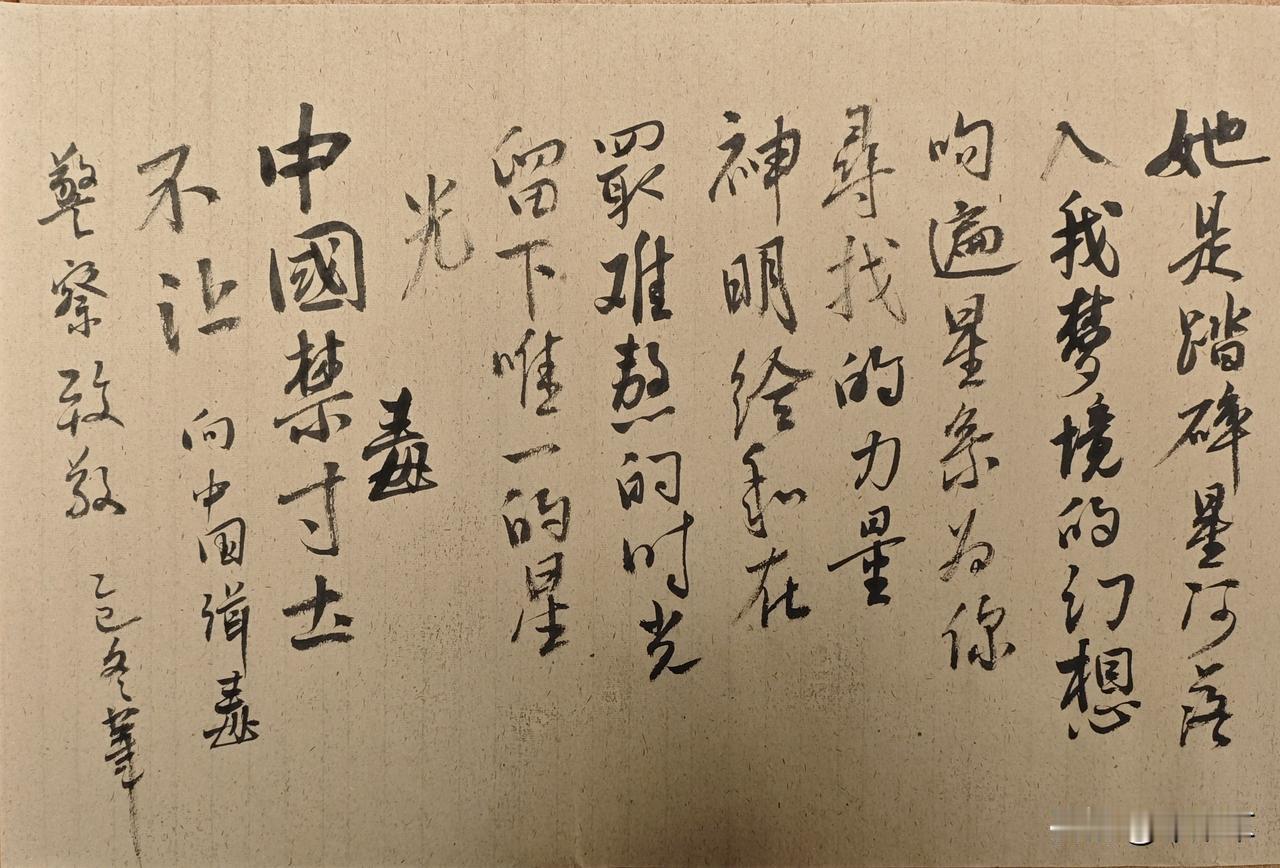 她是踏碎星河落
入我梦境的幻想
吻遍星象为你
尋找的力量
神明给和在
最难熬的时光
留下唯一的星
光
中國禁毒寸土
不让
向中国缉毒
警察致敬
乙巳冬笔